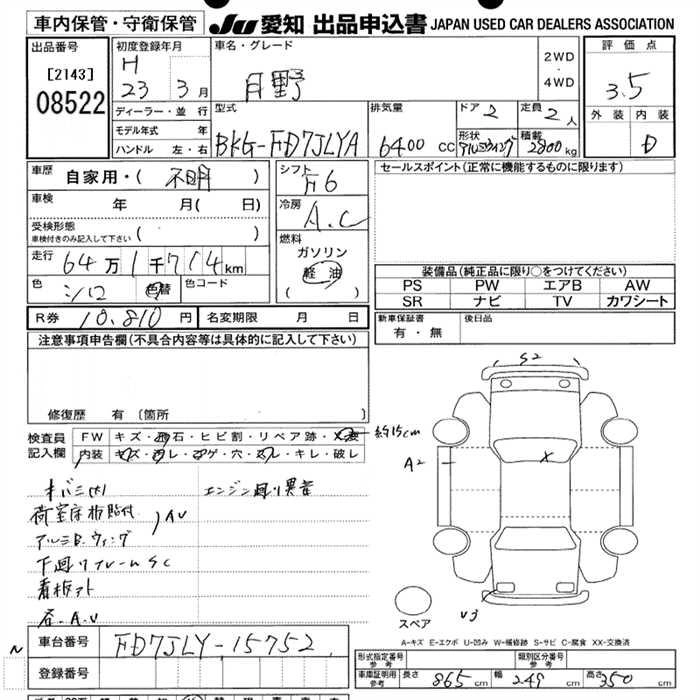 車内保管・守衛保管
JU 愛知 出品申込書 JAPAN USED CAR DEALERS ASSOCIATION
出品番号
[2143]
08522
初度登録年月
H
23 3月
ディーラー・並行
モデル年式 年
ハンドル 左・右
車名・グレード
日野
2WD
・
4WD
評価点
3.5
外装 内装
D
型式
BKG-FD7JLYA
排気量
6400 CC
ドア 2
定員 2人
形状 アルミウイング
積載 2800kg
車歴
自家用・( 不明 )
車検 年 月( 日)
受検形態
車検付きのみ記入して下さい ( )
走行 64万1千714km
色 シロ 色替 色コード
シフト F6
冷房 A.C
燃料
ガソリン
軽油
( )
セールスポイント(正常に機能するものに限ります)
装備品(純正品に限り○をつけてください)
PS PW エアB AW
SR ナビ TV カワシート
新車保証書
有・無
後日品
R券 10.810円 名変期限 月 日
注意事項申告欄(不具合内容等は具体的に記入して下さい)
修復歴 有 (箇所
検査員
記入欄
FW キズ・飛石・ヒビ割・リペア跡・
約15cm
内装 キズ・・コゲ・穴・・キレ・破レ
エンジン廻り異音
荷室床板貼付
AU
アルミB.ウィング
下廻りフレームSC
看板アト
S2
A2
X
V3
スペア
A-キズ E-エクボ U-凹み W-補修跡 S-サビ C-腐食 XX-交換済
N
車台番号 FD7JLY-15752
登録番号
形式指定番号
参考
類別区分番号
参考
車庫証明用
参考
長さ 865cm 幅 249cm 高さ 350cm